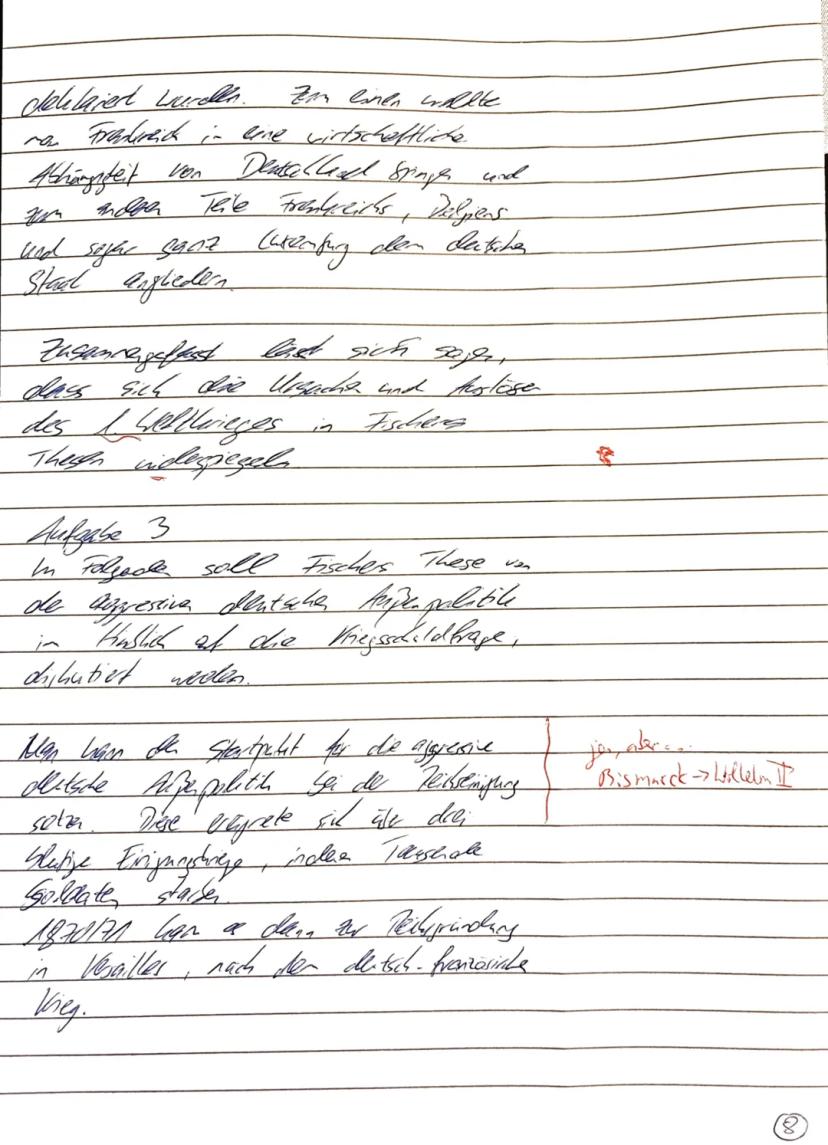 deklariert wurden. Zum einen wollte
man Frankreich in eine wirtschaftliche
Abhängigkeit von Deutschland bringen und
zum anderen Teile Frankreichs, Belgiens
und sogar ganz Luxemburg dem deutschen
Staat angliedern.
Zusammengefasst lässt sich sagen,
dass sich die Ursachen und Auslöser
des 1 Weltkrieges in Fischers
Thesen widerspiegeln.
Aufgabe 3
Im Folgenden soll Fischers These von
der aggressiven deutschen Außenpolitik
in Hinblick auf die Kriegsschuldfrage,
diskutiert werden.
Man kann den Startpunkt für die aggressive
deutsche Außenpolitik bei der Reichseinigung
setzen. Diese ereignete sich über drei
blutige Einigungskriege, indem Tausende
Soldaten starben.
ja, aber...
Bismarck → Wilhelm II
1870/71 kam es dann zur Reichsgründung
in Versailles, nach dem deutsch-französischen
Krieg.
8